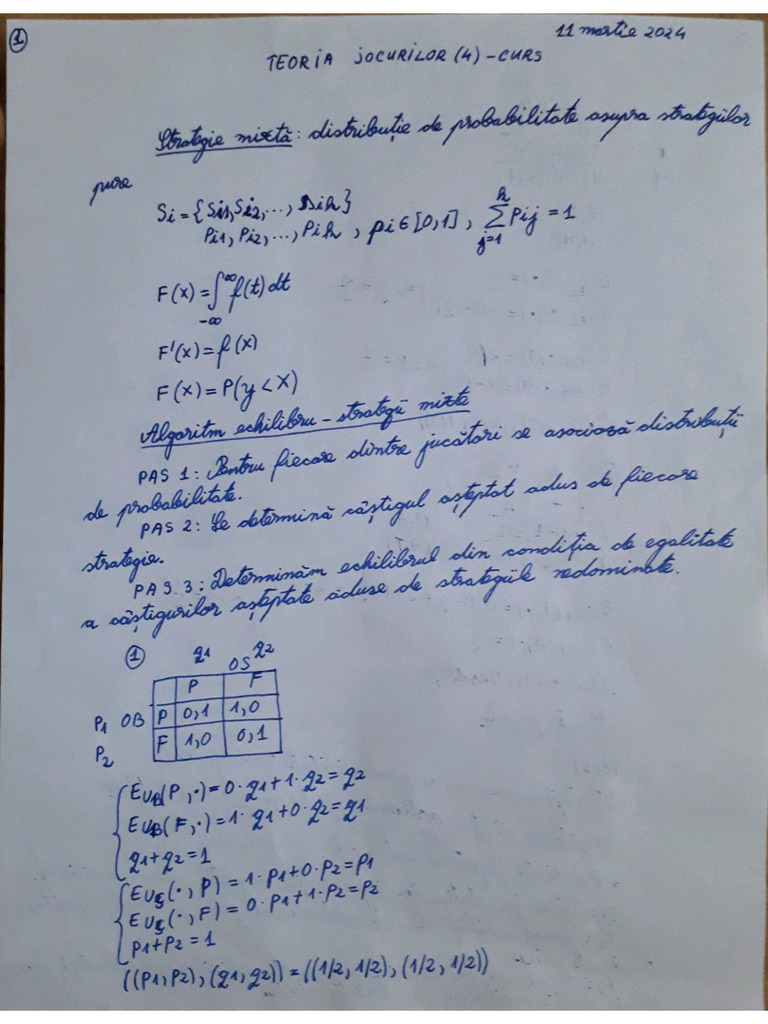 1
11 martie 2024
TEORIA JOCURILOR (4) - CURS
Strategie mixtă: distribuție de probabilitate asupra strategiilor
pure
Si = {Si1, Si2, ..., Sik}
Pi1, Pi2, ..., Pik, pi ∈ [0,1], ∑_{j=1}^{k} Pij = 1
F(x) = ∫_{-∞}^{∞} f(t) dt
F'(x) = f(x)
F(x) = P(y < X)
Algoritm echilibru - strategii mixte
PAS 1: Pentru fiecare dintre jucători se asociază distribuții
de probabilitate.
PAS 2: Se determină câștigul așteptat adus de fiecare
strategie.
PAS 3: Determinăm echilibrul din condiția de egalitate
a câștigurilor așteptate aduse de strategiile nedominate.
1 q1 OS q2
P F
P1 OB P 0,1 1,0
P2 F 1,0 0,1
EUB(P,·) = 0·q1 + 1·q2 = q2
EUB(F,·) = 1·q1 + 0·q2 = q1
q1 + q2 = 1
EUS(·,P) = 1·p1 + 0·p2 = p1
EUS(·,F) = 0·p1 + 1·p2 = p2
p1 + p2 = 1
((p1,p2),(q1,q2)) = ((1/2,1/2),(1/2,1/2))